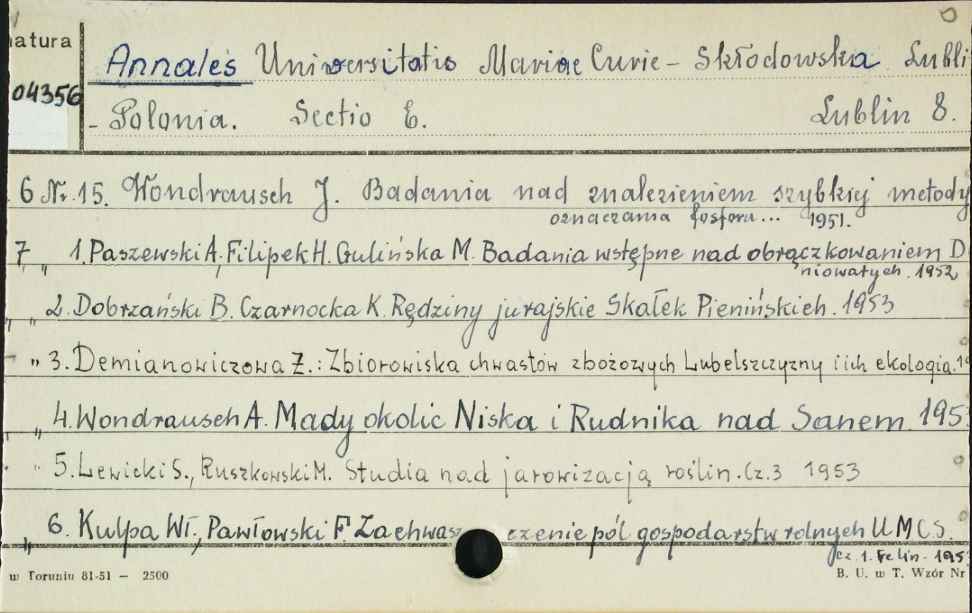 atura
Annales Universitatis Mariae Curie - Skłodowska Lubli
04356
- Polonia. Sectio E. Lublin 8.
6 Nr. 15. Wondrausch J. Badania nad znalezieniem szybkiej metody
oznaczania fosforu... 1951.
7 " 1. Paszewski A., Filipek H. Gulińska M. Badania wstępne nad obrączkowaniem D
niowatych. 1952
" 2. Dobrzański B. Czarnocka K. Rędziny jurajskie Skałek Pienińskich. 1953
" 3. Demianowiczowa Z.: Zbiorowiska chwastów zbożowych Lubelszczyzny i ich ekologia. 19
" 4. Wondrausch A. Mady okolic Niska i Rudnika nad Sanem 195
" 5. Lewicki S., Ruszkowski M. Studia nad jarowizacją roślin. Cz. 3 1953
" 6. Kulpa Wł., Pawłowski F. Zachwaszczenie pól gospodarstw rolnych UMCS.
cz. 1. Felin. 195
w Toruniu 81-51 — 2500
B. U. w T. Wzór Nr